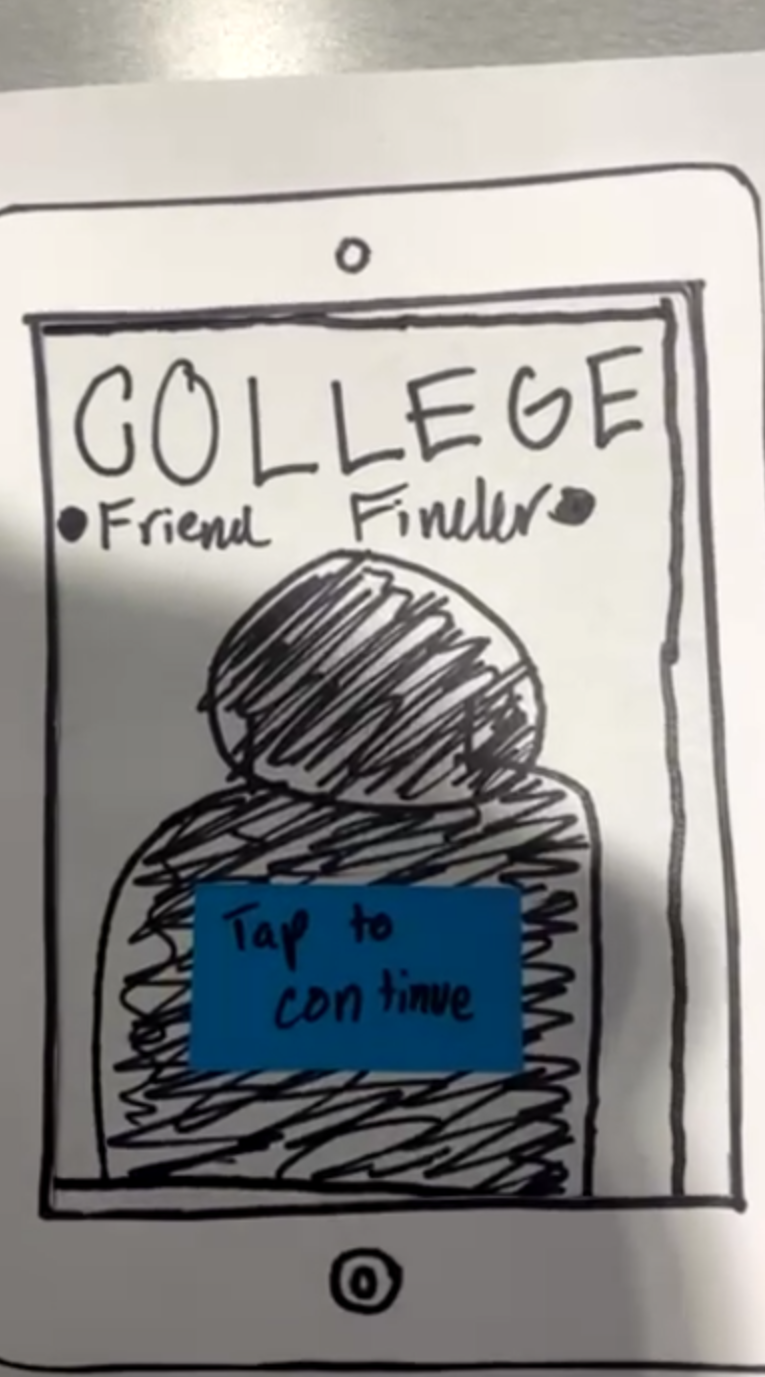 COLLEGE
•Friend Finder•
Tap to
continue